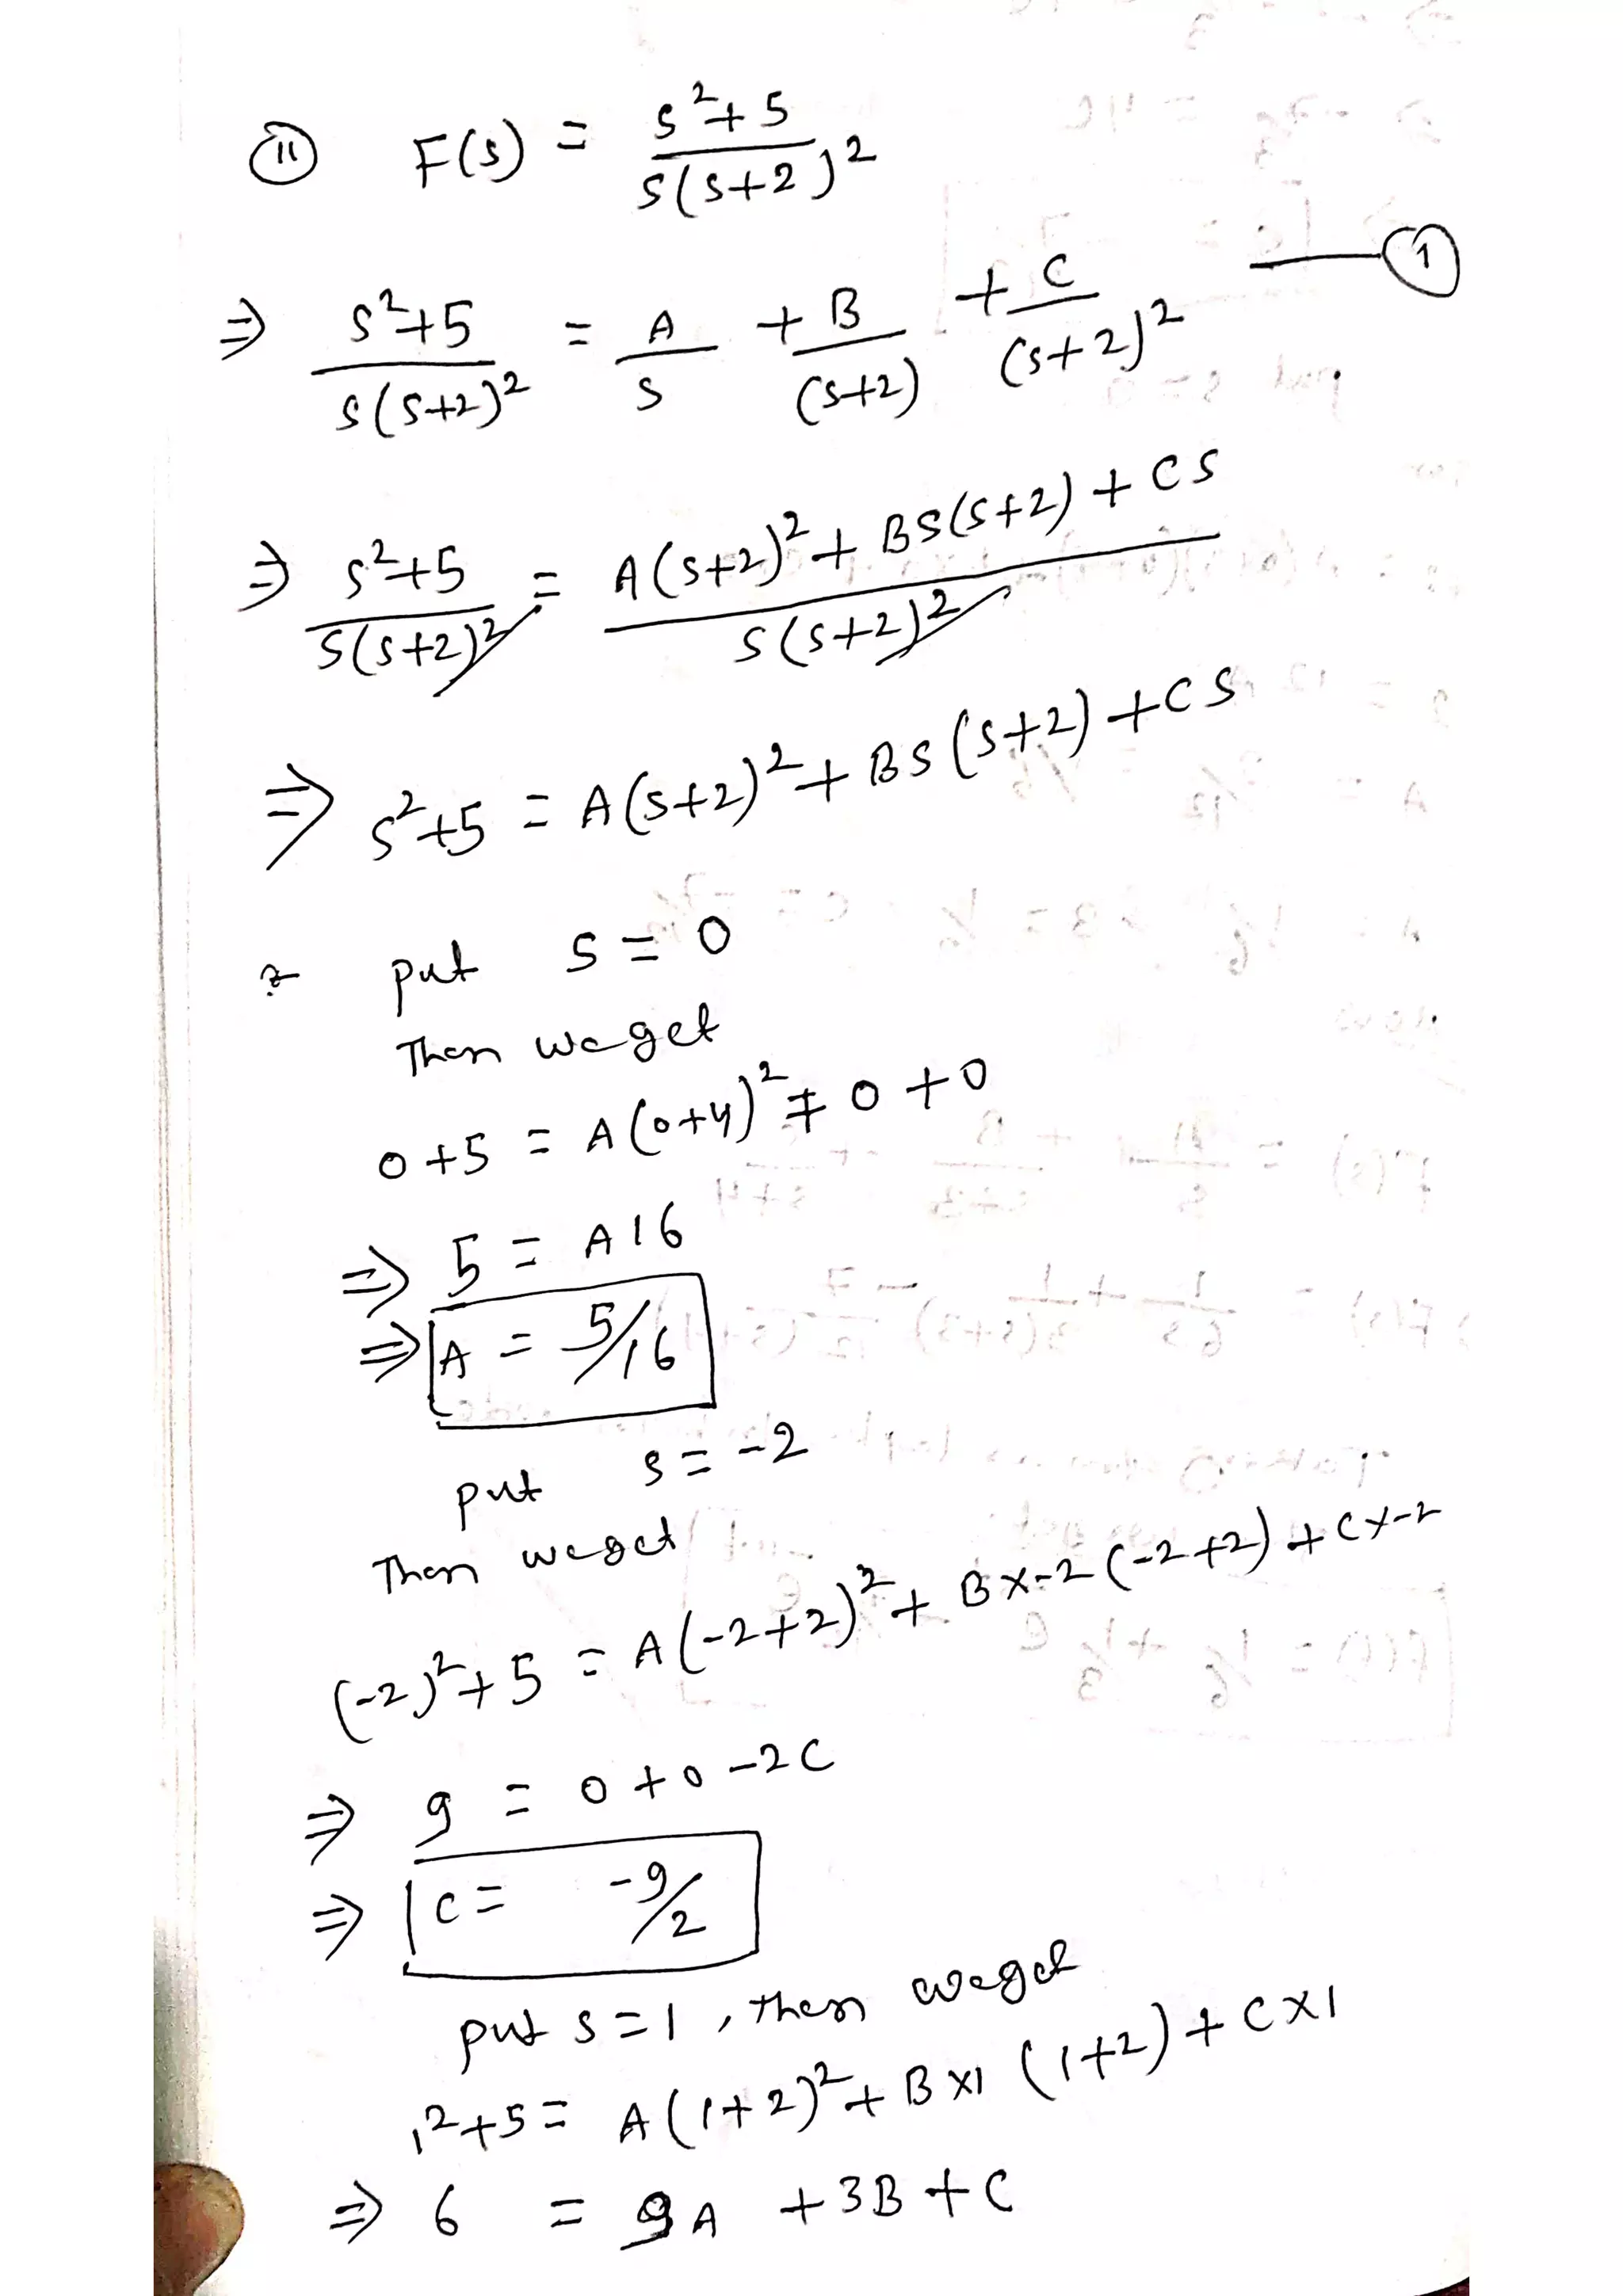 (ii) F(s) = s²+5 / s(s+2)²
⇒ s²+5 / s(s+2)² = A/s + B/(s+2) + C/(s+2)² —— (1)
⇒ s²+5 / s(s+2)² = A(s+2)² + Bs(s+2) + Cs / s(s+2)²
⇒ s²+5 = A(s+2)² + Bs(s+2) + Cs
put s = 0
Then we get
0+5 = A(0+4)² + 0 + 0
⇒ 5 = A16
⇒ A = 5/16
put s = -2
Then we get
(-2)²+5 = A(-2+2)² + B×-2(-2+2) + C×-2
⇒ 9 = 0+0-2C
⇒ C = -9/2
put s=1, then we get
1²+5 = A(1+2)² + B×1 (1+2) + C×1
⇒ 6 = 9A + 3B + C